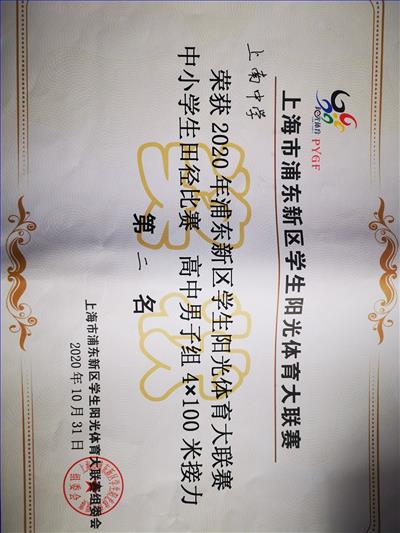 阳光体育
PYGF
上海市浦东新区学生阳光体育大联赛
上南中学
荣获2020年浦东新区学生阳光体育大联赛
中小学生田径比赛 高中男子组4×100米接力
第二名
上海市浦东新区学生阳光体育大联赛组委会
2020年10月31日
组委会